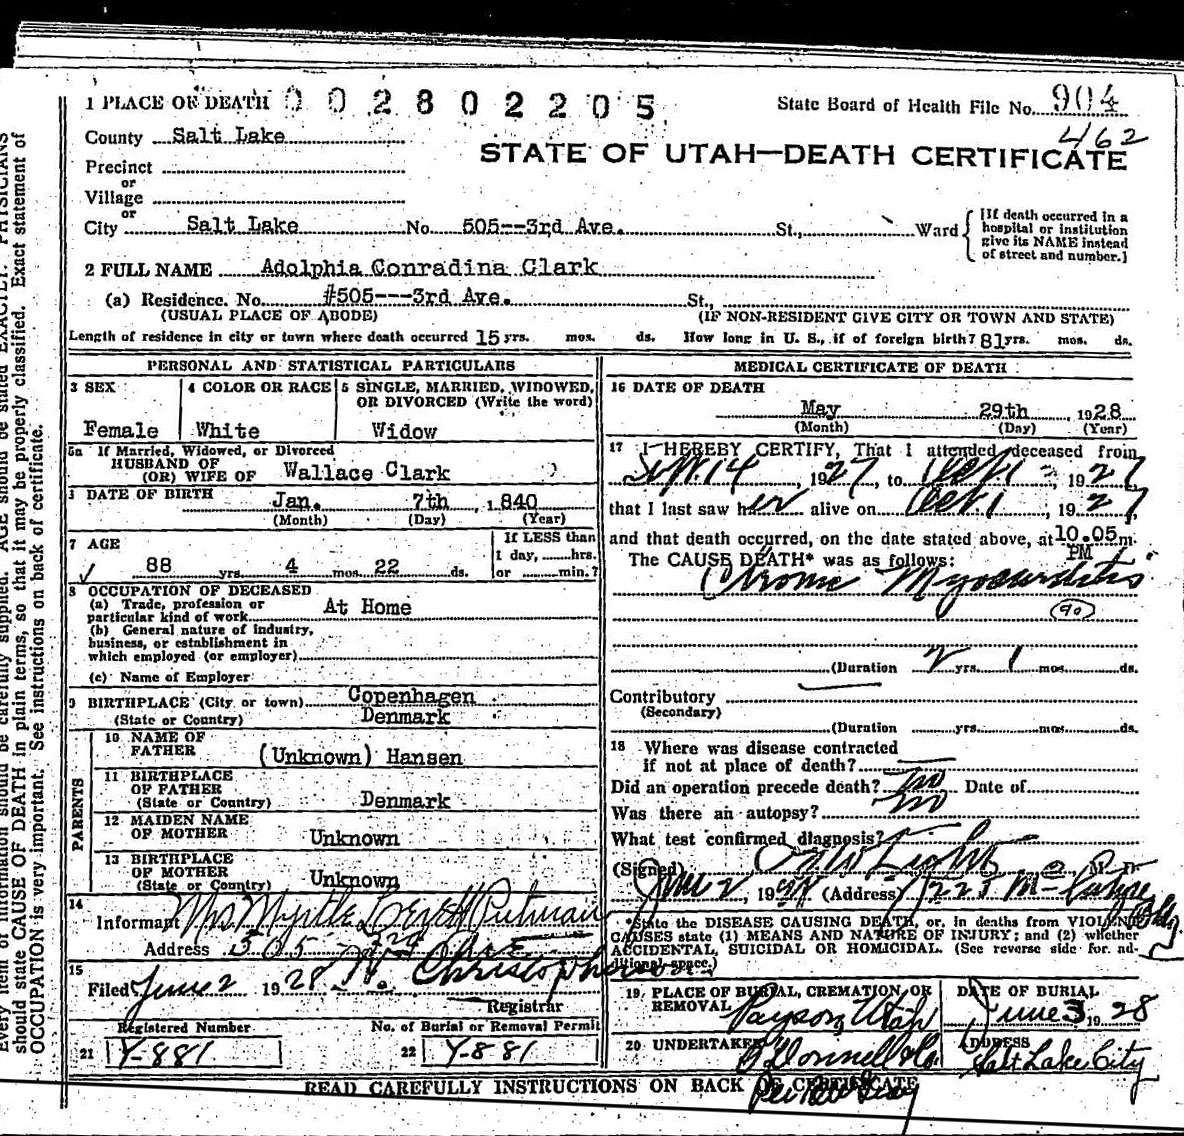 1 PLACE OF DEATH 002802205 State Board of Health File No. 904
County Salt Lake 462
STATE OF UTAH—DEATH CERTIFICATE
Precinct
or
Village
or
City Salt Lake No. 505--3rd Ave. St., Ward
[If death occurred in a
hospital or institution
give its NAME instead
of street and number.]
2 FULL NAME Adolphia Conradina Clark
(a) Residence. No. #505---3rd Ave. St.,
(USUAL PLACE OF ABODE) (IF NON-RESIDENT GIVE CITY OR TOWN AND STATE)
Length of residence in city or town where death occurred 15 yrs. mos. ds. How long in U. S., if of foreign birth? 81 yrs. mos. ds.
PERSONAL AND STATISTICAL PARTICULARS
3 SEX 4 COLOR OR RACE 5 SINGLE, MARRIED, WIDOWED,
OR DIVORCED (Write the word)
Female White Widow
5a If Married, Widowed, or Divorced
HUSBAND OF
(OR) WIFE OF Wallace Clark
DATE OF BIRTH Jan. 7th, 1840
(Month) (Day) (Year)
7 AGE If LESS than
1 day, hrs.
88 yrs. 4 mos. 22 ds. or min.?
8 OCCUPATION OF DECEASED
(a) Trade, profession or
particular kind of work At Home
(b) General nature of industry,
business, or establishment in
which employed (or employer)
(c) Name of Employer
9 BIRTHPLACE (City or town) Copenhagen
(State or Country) Denmark
PARENTS
10 NAME OF
FATHER (Unknown) Hansen
11 BIRTHPLACE
OF FATHER
(State or Country) Denmark
12 MAIDEN NAME
OF MOTHER Unknown
13 BIRTHPLACE
OF MOTHER
(State or Country) Unknown
14
Informant Mrs Myrtle Putman
Address 505
15
Filed June 2 1928 Christopherson
Registrar
Registered Number No. of Burial or Removal Permit
21 Y-881 22 Y-881
MEDICAL CERTIFICATE OF DEATH
16 DATE OF DEATH
May 29th, 1928
(Month) (Day) (Year)
17 I HEREBY CERTIFY, That I attended deceased from
Sept. 14, 1927, to Oct. 1, 1927,
that I last saw her alive on Oct. 1, 1927
and that death occurred, on the date stated above, at 10.05 m.
PM
The CAUSE DEATH* was as follows:
Chronic Myocarditis
90
(Duration 2 yrs. 1 mos. ds.
Contributory
(Secondary)
(Duration yrs. mos. ds.
18 Where was disease contracted
if not at place of death?
Did an operation precede death? no Date of
Was there an autopsy? no
What test confirmed diagnosis?
(Signed) M. D.
June 2, 1928 (Address) 1223 McIntyre Bldg.
*State the DISEASE CAUSING DEATH, or, in deaths from VIOLENT
CAUSES state (1) MEANS AND NATURE OF INJURY; and (2) whether
ACCIDENTAL, SUICIDAL OR HOMICIDAL. (See reverse side for ad-
ditional space.)
19 PLACE OF BURIAL, CREMATION, OR
REMOVAL Payson, Utah
DATE OF BURIAL
June 3, 1928
20 UNDERTAKER O'Donnell & Co.
ADDRESS
Salt Lake City
READ CAREFULLY INSTRUCTIONS ON BACK OF CERTIFICATE
should state CAUSE OF DEATH in plain terms, so that it may be properly classified. Exact statement of
OCCUPATION is very important. See instructions on back of certificate.